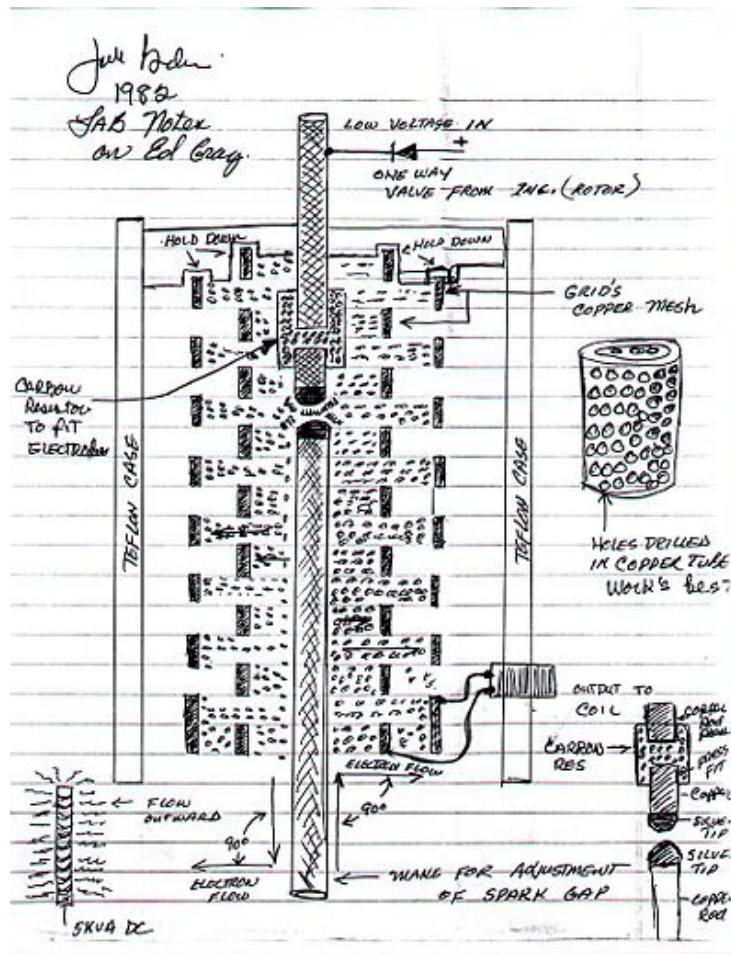 1982
LAB Notes
on Ed Gray.
LOW VOLTAGE IN
+
ONE WAY
VALVE FROM ING. (ROTOR)
HOLD DOWN
HOLD DOWN
GRID'S
COPPER MESH
CARBON
RESISTOR
TO FIT
TEFLON CASE
TEFLON CASE
HOLES DRILLED
IN COPPER TUBE
WORK'S BEST
OUTPUT TO
COIL
CARBON
RES
PRESS
FIT
COPPER
SILVE
TIP
SILVE
TIP
COPPE
ROD
ELECTRON FLOW
90°
FLOW
OUTWARD
90°
ELECTRON
FLOW
FOR ADJUSTMENT
OF SPARK GAP
5KVA DC